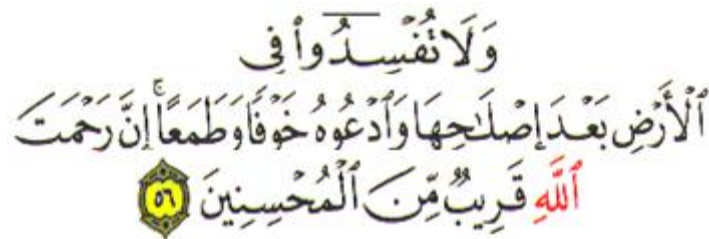 وَلَا تُفْسِدُوا۟ فِى
ٱلْأَرْضِ بَعْدَ إِصْلَـٰحِهَا وَٱدْعُوهُ خَوْفًا وَطَمَعًا ۚ إِنَّ رَحْمَتَ
ٱللَّهِ قَرِيبٌ مِّنَ ٱلْمُحْسِنِينَ ٥٦